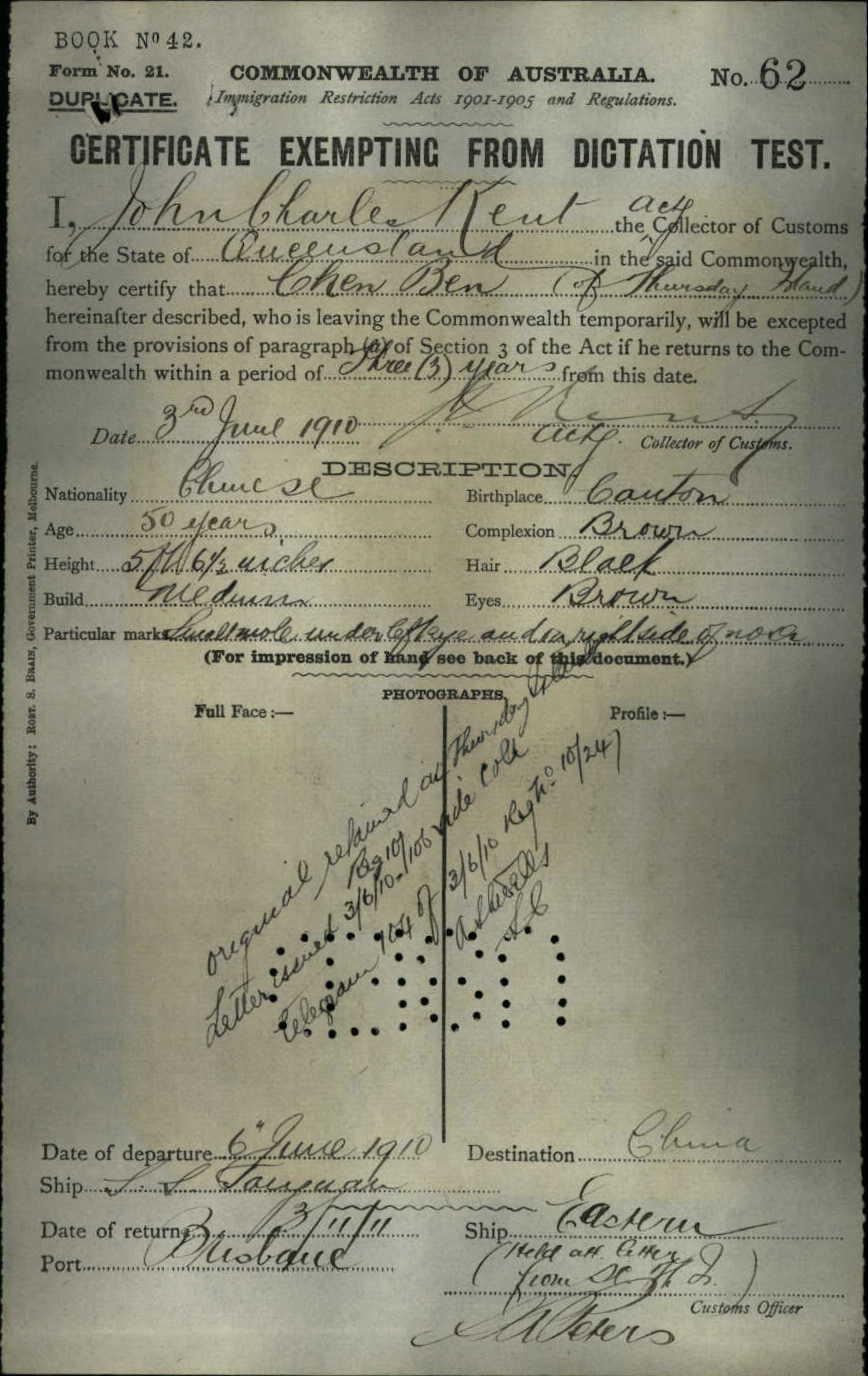 BOOK Nº 42.
Form No. 21.
COMMONWEALTH OF AUSTRALIA.
No. 62
DUPLICATE.
Immigration Restriction Acts 1901-1905 and Regulations.
CERTIFICATE EXEMPTING FROM DICTATION TEST.
I, John Charles Kent actg the Collector of Customs
for the State of Queensland in the said Commonwealth,
hereby certify that Chen Ben (of Thursday Island)
hereinafter described, who is leaving the Commonwealth temporarily, will be excepted
from the provisions of paragraph (a) of Section 3 of the Act if he returns to the Com-
monwealth within a period of Three (3) years from this date.
Date 3rd June 1910
actg. Collector of Customs.
DESCRIPTION.
Nationality Chinese
Birthplace Canton
Age 50 years
Complexion Brown
Height 5ft 6½ inches
Hair Black
Build Medium
Eyes Brown
Particular marks Small mole under left eye and on right side of nose
(For impression of hand see back of this document.)
PHOTOGRAPHS.
Full Face :—
Profile :—
original retained at Thursday Island
Letter issued 3/6/10 Reg 10/106 vide Coll
telegram 104 of 3/6/10 Reg No 10/24)
By Authority: ROBT. S. BRAIN, Government Printer, Melbourne.
Date of departure 6th June 1910
Destination China
Ship S. S. Taiyuan
Date of return 3/11/11
Ship Eastern
Port Brisbane
(Held att letter
from S.C. Th I.)
Customs Officer
Peters